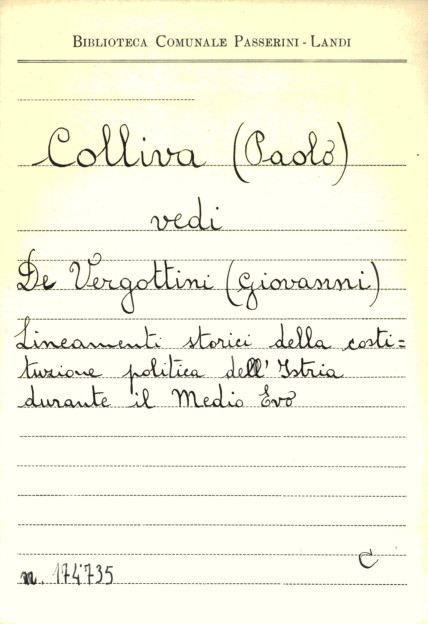 BIBLIOTECA COMUNALE PASSERINI - LANDI
Colliva (Paolo)
vedi
De Vergottini (Giovanni)
Lineamenti storici della costi=
tuzione politica dell'Istria
durante il Medio Evo
C
n. 174735